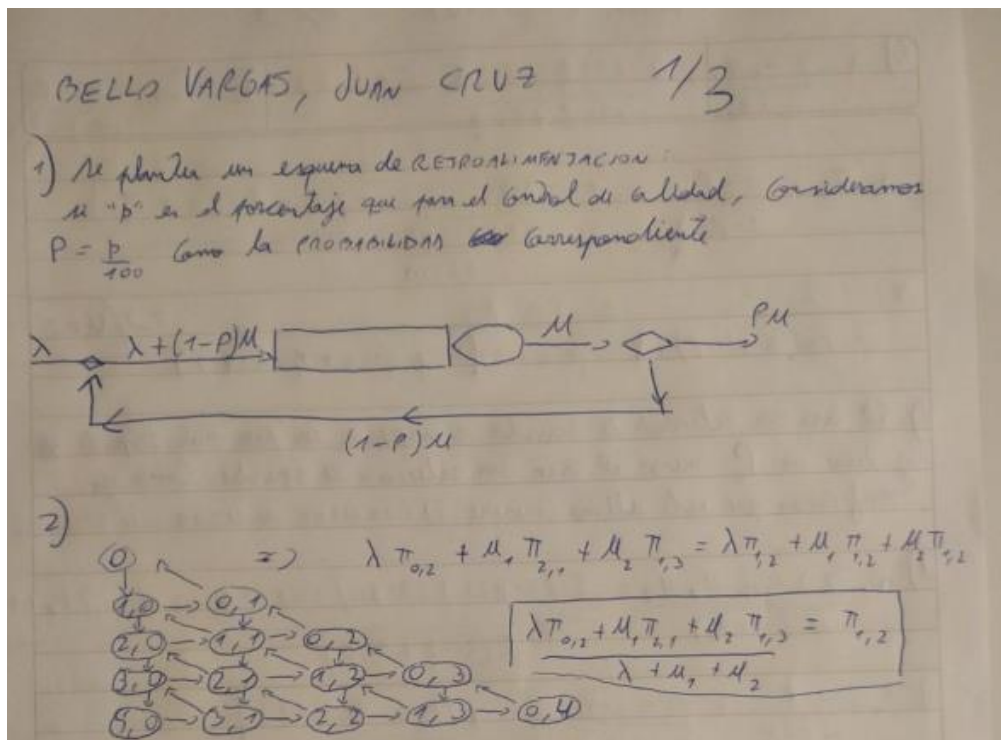 BELLO VARGAS, JUAN CRUZ 1/3
1) Se plantea un esquema de RETROALIMENTACION:
si "p" es el porcentaje que pasa el control de calidad, consideramos
P = p/100 como la PROBABILIDAD correspondiente
λ λ+(1-P)μ μ Pμ
(1-P)μ
2)
0 => λπ0,2 + μ1 π2,1 + μ2 π1,3 = λπ1,2 + μ1 π1,2 + μ2 π1,2
1,0 0,1
2,0 1,1 0,2 (λπ0,2 + μ1 π2,1 + μ2 π1,3)/(λ + μ1 + μ2) = π1,2
3,0 2,1 1,2 0,3
5,0 3,1 2,2 1,3 0,4